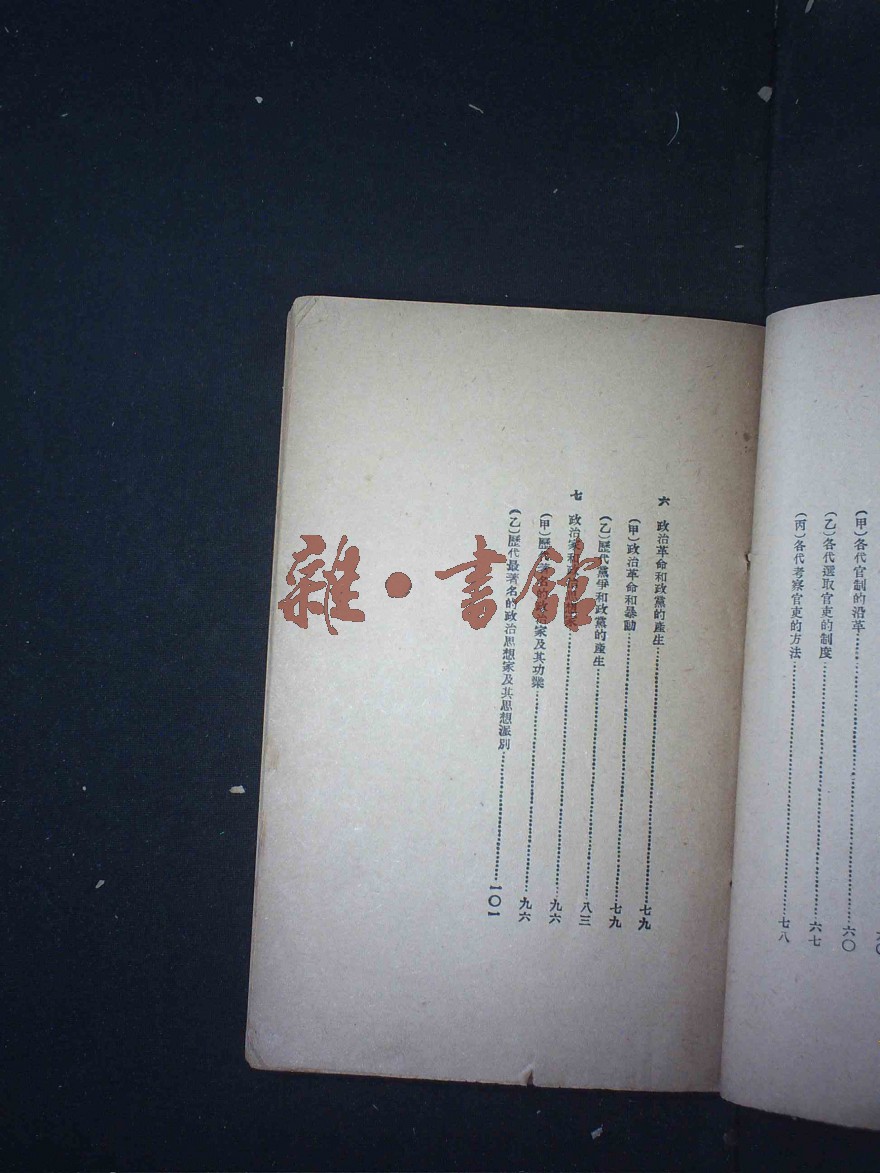 (甲)各代官制的沿革 六〇
(乙)各代選取官吏的制度 六七
(丙)各代考察官吏的方法 七八
六 政治革命和政黨的產生 七九
(甲)政治革命和暴動 七九
(乙)歷代黨爭和政黨的產生 八三
七 政治家和政治思想家 九六
(甲)歷代著名的政治家及其功業 九六
(乙)歷代最著名的政治思想家及其思想派別 一〇一
雜·書館